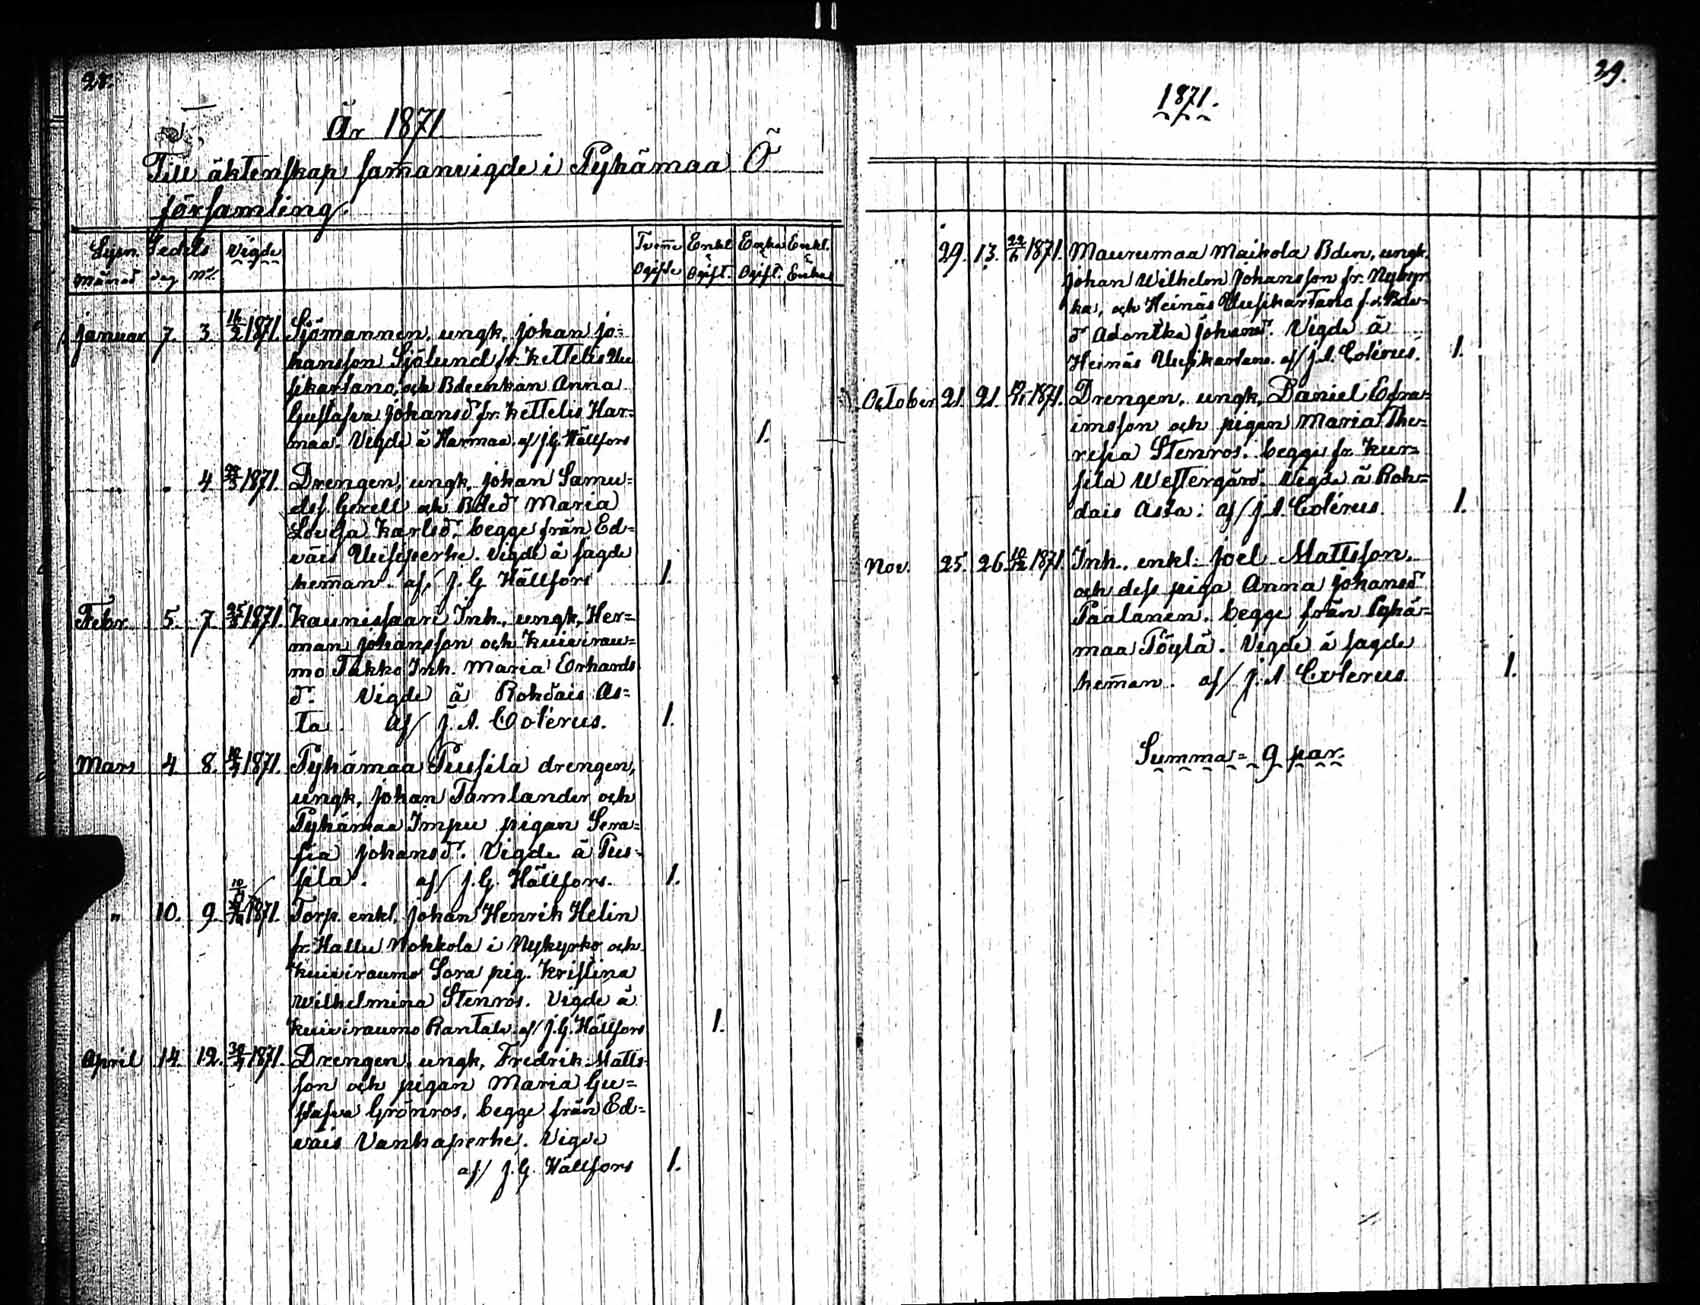 28.
År 1871
Till äktenskap samanvigde i Pyhämaa Ö
församling.
Lysn. Sedels Vigde Tvenne Enkl. Enka Enkl.
Månad dag No. Ogifte o Ogift. o Ogift. o Enka
Januar 7. 3. 16/2 1871. Sjömannen, ungk. Johan Jo=
hansson Sjölund fr. Kettelis Uu
sikartano, och Bdeenkan Anna
Gustafva Johansd. fr. Kettelis Har=
maa. Vigde å Harmaa. af/ J.G. Hällfors 1.
" " 4 1871. Drengen, ungk. Johan Samu=
elsf. Gerell och Bded. Maria
Lovisa Karlsd. begge från Ed=
väis Uusiperhe. Vigde å sagde
heman. af/ J.G Hällfors 1.
Febr. 5. 7. 1871. Kaunissaari Inh., ungk, Her=
man Johansson och Kuivirau=
mo Takko Inh. Maria Erhards
d. Vigde å Rohdais As=
ta. af/ J.A. Colérus. 1.
Mars 4. 8. 1871. Pyhämaa Pusila drengen,
ungk, Johan Tamlander och
Pyhämaa Impu pigan Sera=
fia Johansd. Vigde å Pus=
sila. af/ J.G. Hällfors. 1.
" 10. 9. 1871. Torp. enkl. Johan Henrik Helin
fr. Hallu Nokkola i Nykyrko och
Kuiviraumo Sora pig. Kristina
Wilhelmina Stenros. Vigde å
Kuiviraumo Rantala. af/ J.G. Hällfors 1.
April 14. 12. 1871. Drengen, ungk, Fredrik Matts=
son och pigan Maria Gu=
stafva Grönros, begge från Ed=
väis Vanhaperhe. Vigde
af/ J.G. Hällfors 1.
1871.
29.
" 29. 13. 1871. Maurumaa Maikola Bden, ungk.
Johan Wilhelm Johansson fr. Nykyr
ka, och Heinäs Uusikartano f.d. Bde=
d. Adontka Johansd. Vigde å
Heinäs Uusikartano. af/ J.A. Colérus. 1.
October 21. 21. 1871. Drengen, ungk, Daniel Efra=
imsson och pigan Maria The=
resia Stenros. begge fr. Kur=
sila Westergård. Vigde å Roh=
dais Asta. af/ J.A. Colérus. 1.
Nov. 25. 26. 1871. Inh., enkl. Joel Mattsson,
och dess piga Anna Johansd
Paalanen, begge från Pyhä=
maa Töylä. Vigde å sagde
heman. af/ J.A Colérus. 1.
Summa = 9 par.